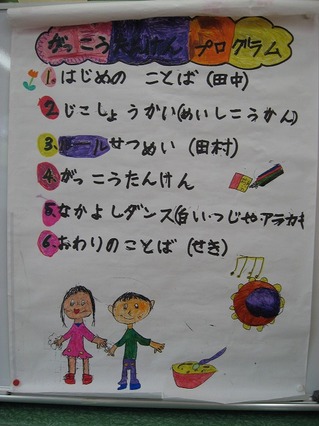 がっこうたんけん プログラム
1.はじめの ことば (田中)
2.じこしょうかい(めいしこうかん)
3.ルールせつめい (田村)
4.がっこうたんけん
5.なかよしダンス(白いつじや・アラカキ
6.おわりのことば (せき)